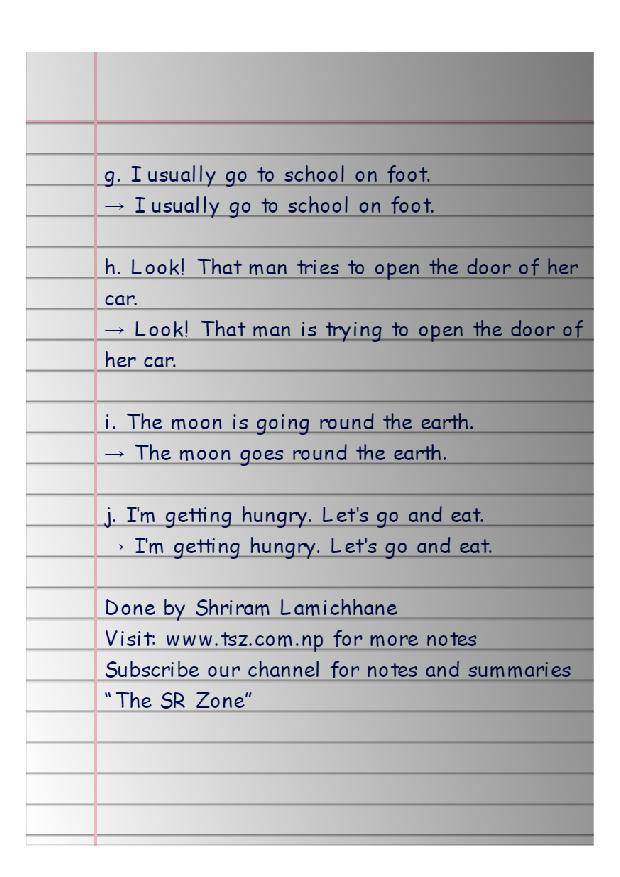 g. I usually go to school on foot.
→ I usually go to school on foot.
h. Look! That man tries to open the door of her
car.
→ Look! That man is trying to open the door of
her car.
i. The moon is going round the earth.
→ The moon goes round the earth.
j. I'm getting hungry. Let's go and eat.
→ I'm getting hungry. Let's go and eat.
Done by Shriram Lamichhane
Visit: www.tsz.com.np for more notes
Subscribe our channel for notes and summaries
“The SR Zone”